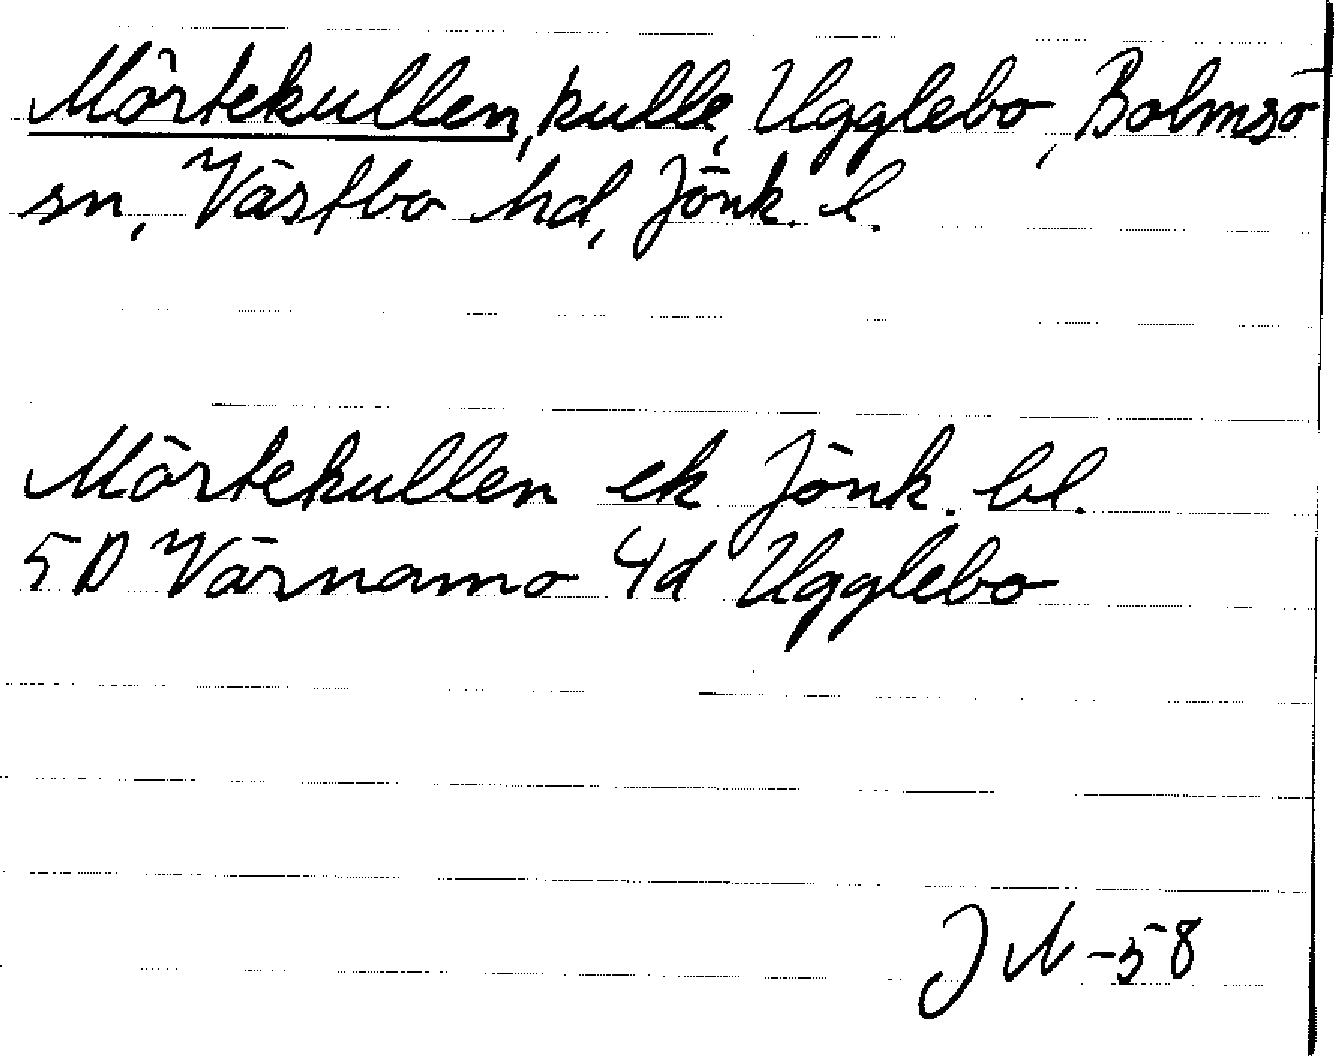 Mörtekullen, kulle, Ugglebo, Bolmsö
sn, Västbo hd, Jönk. l.
Mörtekullen ek Jönk. bl.
5D Värnamo 4d Ugglebo
-58